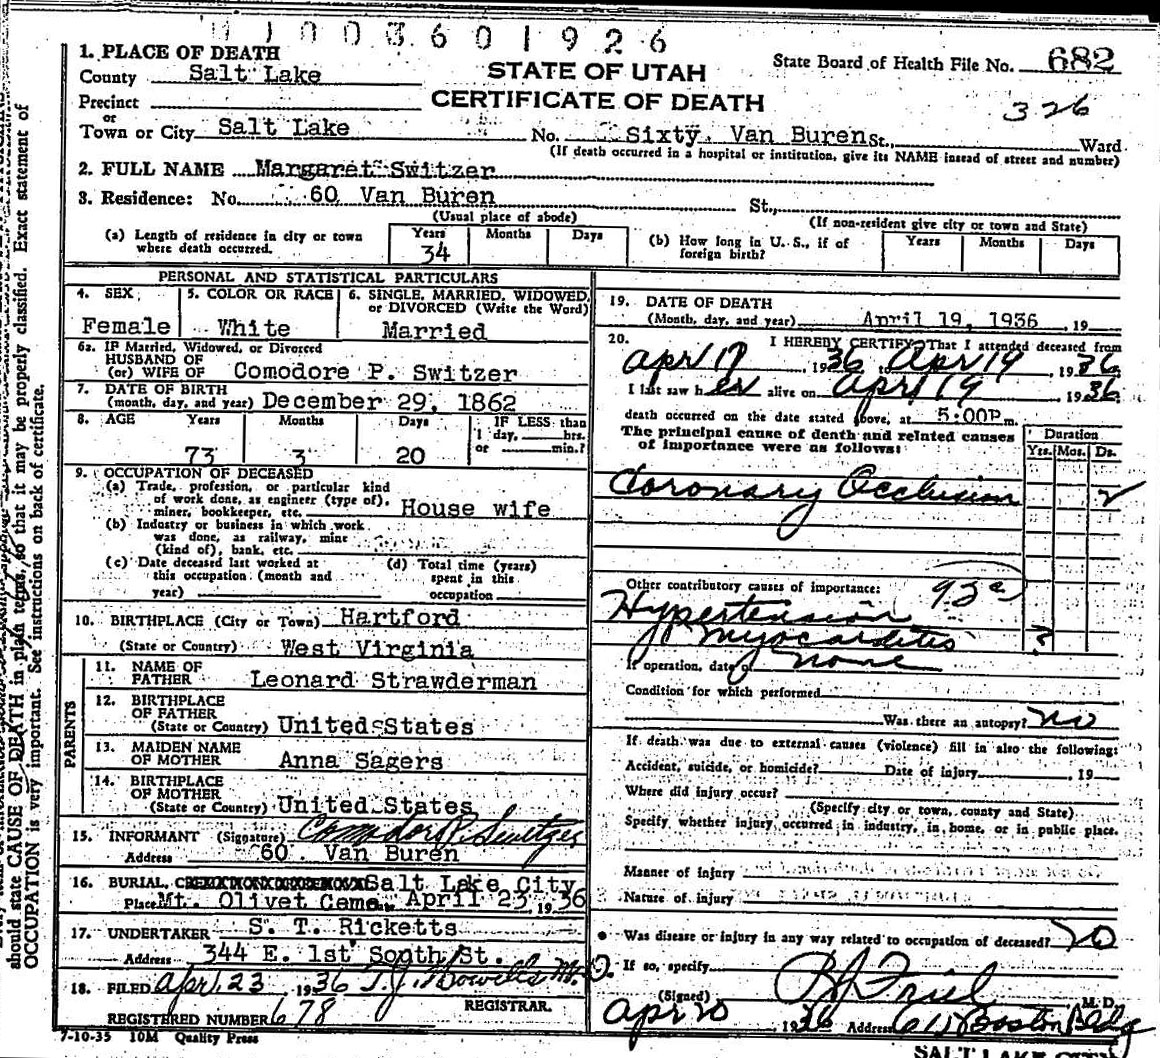 1003601926
1. PLACE OF DEATH
County Salt Lake
STATE OF UTAH
State Board of Health File No. 682
Precinct
CERTIFICATE OF DEATH
326
or
Town or City Salt Lake No. Sixty Van Buren St., Ward
(If death occurred in a hospital or institution, give its NAME instead of street and number)
2. FULL NAME Margaret Switzer
3. Residence: No. 60 Van Buren St.,
(Usual place of abode) (If non-resident give city or town and State)
(a) Length of residence in city or town where death occurred. Years 34 Months Days
(b) How long in U. S., if of foreign birth? Years Months Days
PERSONAL AND STATISTICAL PARTICULARS
4. SEX Female
5. COLOR OR RACE White
6. SINGLE, MARRIED, WIDOWED, or DIVORCED (Write the Word) Married
6a. IF Married, Widowed, or Divorced
HUSBAND OF
(or) WIFE OF Comodore P. Switzer
7. DATE OF BIRTH
(month, day, and year) December 29, 1862
8. AGE Years 73 Months 3 Days 20
IF LESS than
1 day, hrs.
or min.?
9. OCCUPATION OF DECEASED
(a) Trade, profession, or particular kind
of work done, as engineer (type of),
miner, bookkeeper, etc. House wife
(b) Industry or business in which work
was done, as railway, mine
(kind of), bank, etc.
(c) Date deceased last worked at
this occupation (month and
year)
(d) Total time (years)
spent in this
occupation
10. BIRTHPLACE (City or Town) Hartford
(State or Country) West Virginia
PARENTS
11. NAME OF
FATHER Leonard Strawderman
12. BIRTHPLACE
OF FATHER
(State or Country) United States
13. MAIDEN NAME
OF MOTHER Anna Sagers
14. BIRTHPLACE
OF MOTHER
(State or Country) United States
15. INFORMANT (Signature) Comodore P. Switzer
Address 60 Van Buren
16. BURIAL, Salt Lake City
Place Mt. Olivet Ceme. April 23, 1936
17. UNDERTAKER S. T. Ricketts
Address 344 E. 1st South St.
18. FILED Apr. 23 1936 T. J. Howells M. D.
REGISTRAR.
REGISTERED NUMBER 678
7-10-35 10M Quality Press
19. DATE OF DEATH
(Month, day, and year) April 19, 1936, 19
20. I HEREBY CERTIFY That I attended deceased from
Apr 17, 1936 to Apr 19, 1936
I last saw her alive on Apr 19 1936
death occurred on the date stated above, at 5:00P m.
The principal cause of death and related causes
of importance were as follows:
Duration
Yrs. Mos. Ds.
Coronary Occlusion 2
Other contributory causes of importance: 93a
Hypertension
Myocarditis ?
If operation, date of none
Condition for which performed
Was there an autopsy? no
If death was due to external causes (violence) fill in also the following:
Accident, suicide, or homicide? Date of injury, 19
Where did injury occur?
(Specify city or town, county and State)
Specify whether injury occurred in industry, in home, or in public place.
Manner of injury
Nature of injury
Was disease or injury in any way related to occupation of deceased? no
If so, specify
(Signed) Friel M. D.
Apr 20 1936 Address Boston Bldg
SALT LAKE CITY
should state CAUSE OF DEATH in plain terms, so that it may be properly classified. Exact statement of
OCCUPATION is very important. See instructions on back of certificate.